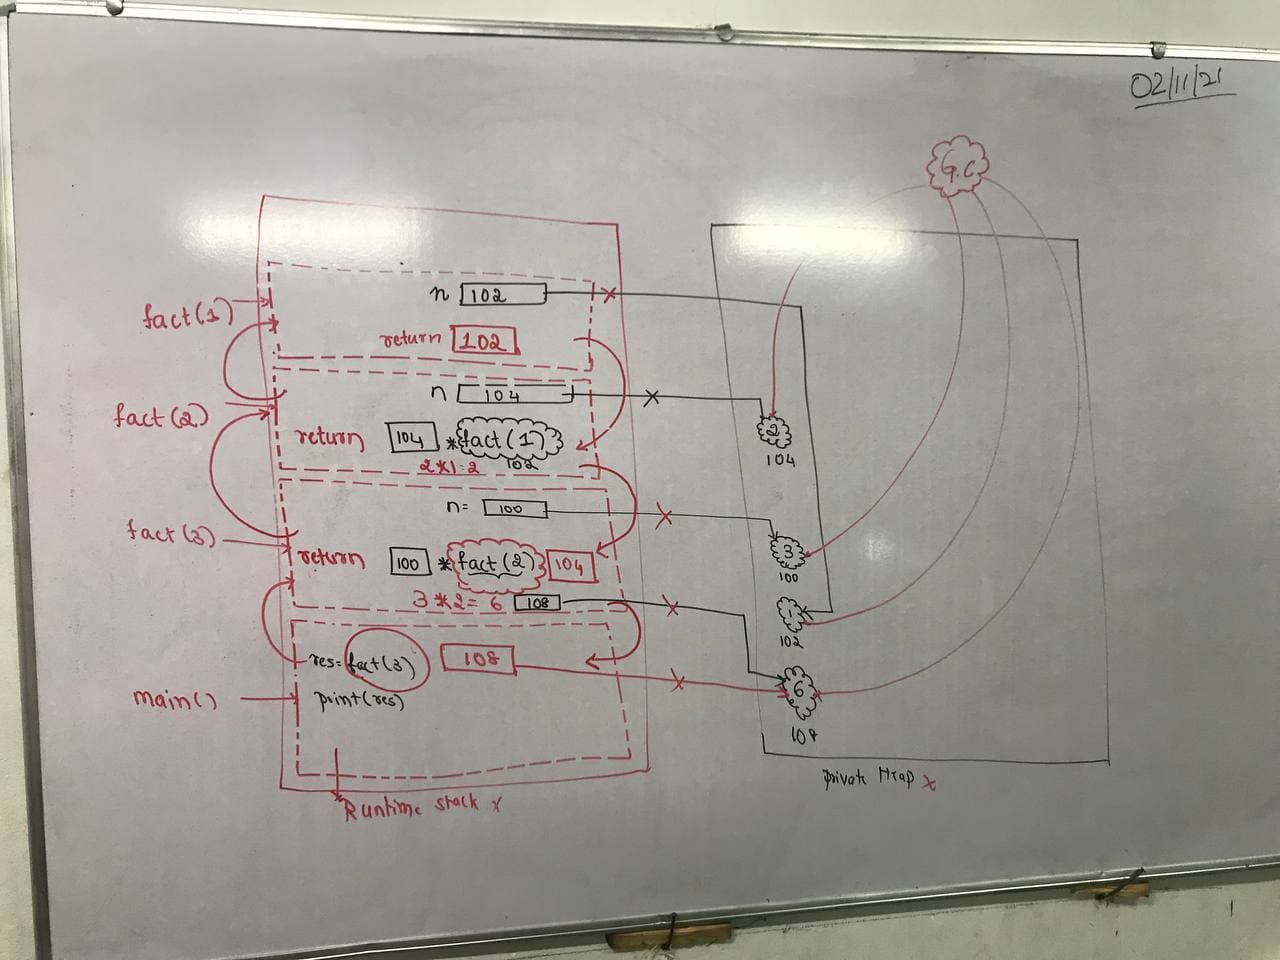 02/11/21
G.C
fact(1)
n 102
return 102
fact(2)
n 104
return 104 * fact(1)
2*1=2 102
fact(3)
n= 100
return 100 * fact(2) 104
3*2= 6 108
res= fact(3) 108
main()
print(res)
Runtime stack x
2
104
3
100
1
102
6
108
private Heap x